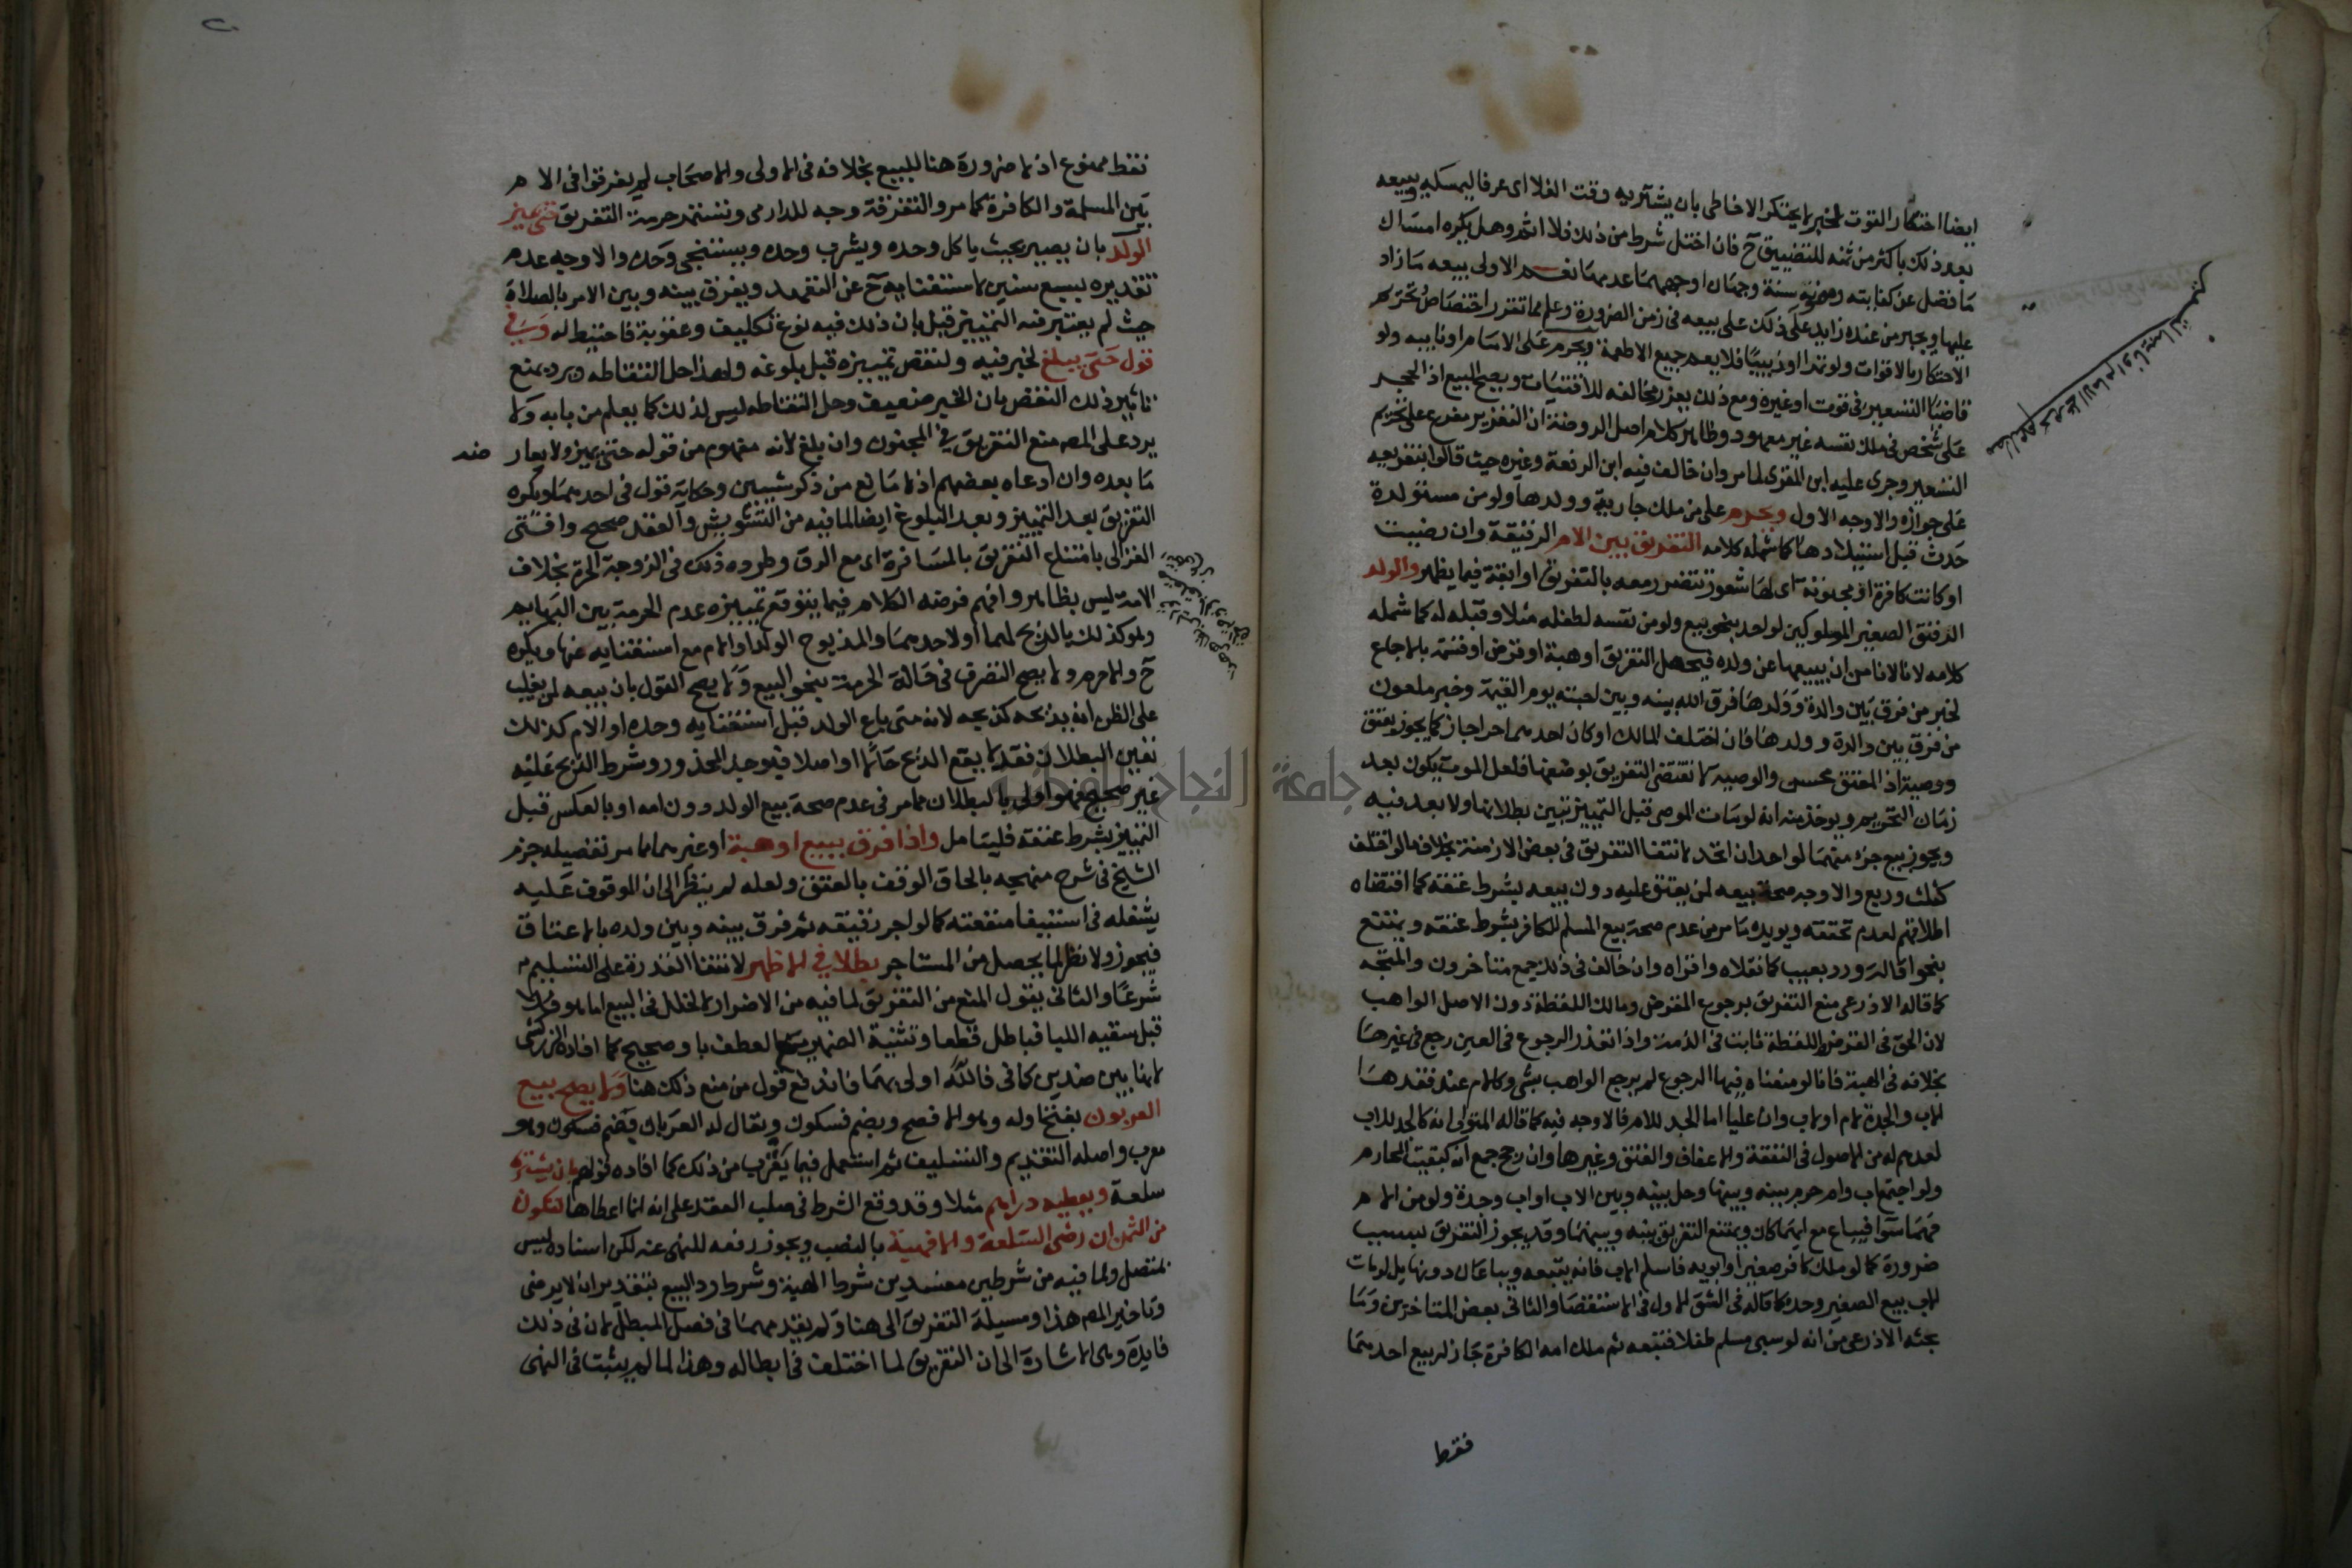 ايضا احتكار القوت لخبر لا يحتكر الا خاطى بان يشتريه وقت الغلا اى عرفا ليمسكه ويبيعه
بعد ذلك باكثر من ثمنه للتضييق ح فان اختل شرط من ذلك فلا اثم وهل يكره امساك
ما فضل عن كفايته وممونه سنة وجهان اوجههما عدمها نعم الاولى بيعه ما زاد
عليها ويجبر من عنده زايد على ذلك على بيعه فى زمن الضرورة وعلم مما تقرر اختصاص تحريم
الاحتكار بالاقوات ولو تمرا او زبيبا فلا يعم جميع الاطعمة ويحرم على الامام او نايبه ولو
قاضيا التسعير فى قوت او غيره ومع ذلك يعزر مخالفه للافتيات ويصح البيع اذ الحجر
على شخص فى ملك نفسه غير معهود وظاهر كلام اصل الروضة ان التعزير مفرع على تحريم
التسعير وجرى عليه ابن المقرى لما مر وان خالف فيه ابن الرفعة وغيره حيث قالوا بتفريعه
على جوازه والاوجه الاول ويحرم على من ملك جارية وولدها ولو من مستولدة
حدث قبل استيلادها كما شمله كلامه التفريق بين الام الرقيقة وان رضيت
او كانت كافرة او مجنونة اى لها شعور تتضرر معه بالتفريق او ابقة فيما يظهر والولد
الرقيق الصغير المملوكين لواحد بنحو بيع ولو من نفسه لطفله مثلا وقبله له كما شمله
كلامه لانا لا نامن ان يبيعها عن ولده فيحصل التفريق او هبة او قرض او قسمة بالاجماع
لخبر من فرق بين والدة وولدها فرق الله بينه وبين احبته يوم القيمة وخبر ملعون
من فرق بين والدة وولدها فان اختلف المالك او كان احدهما حرا جاز كما يجوز بعتق
ووصية اذ المعتق محسن والوصية لا تقتضى التفريق بوضعها فلعل الموت يكون بعد
زمان التحريم ويوخذ منه انه لو مات الموصى قبل التمييز تبين بطلانها ولا بعد فيه
ويجوز بيع جزء منهما لواحد ان اتحد لانتفا التفريق فى بعض الازمنة بخلاف ما لو اختلف
كثلث وربع والاوجه صحة بيعه لمن يعتق عليه دون بيعه بشرط عتقه كما اقتضاه
اطلاقهم لعدم تحققه ويويده ما مر من عدم صحة بيع المسلم للكافر بشرط عتقه ويمتنع
بنحو اقالة ورد بعيب كما نقلاه واقراه وان خالف فى ذلك جمع متاخرون والمتجه
كما قاله الاذرعى منع التفريق برجوع المقرض ومالك اللقطة دون الاصل الواهب
لان الحق فى القرض واللقطة ثابت فى الذمة واذا تعذر الرجوع فى العين رجع فى غيرها
بخلافه فى الهبة فانا لو منعناه فيها الرجوع لم يرجع الواهب بشى وكالام عند فقدها
الاب والجدة لام او لاب وان عليا اما الجد للام فالاوجه فيه كما قاله المتولى انه كالجد للاب
لعدهم له من الاصول فى النفقة والاعفاف والعتق وغيرها وان رجح جمع انه كبقية المحارم
ولو اجتمع اب وام حرم بينه وبينها وحل بينه وبين الاب او اب وجدة ولو من الام
فهما سوا فيباع مع ايهما كان ويمتنع التفريق بينه وبينهما وقد يجوز التفريق لسبب
ضرورة كما لو ملك كافر صغيرا وابويه فاسلم الاب فانه يتبعه ويباعان دونها بل لو مات
الاب بيع الصغير وحده كما قاله فى الشق الاول فى الاستقصا والثانى بعض المتاخرين وما
بحثه الاذرعى من انه لو سبى مسلم طفلا فتبعه ثم ملك امه الكافرة جاز له بيع احدهما
فقط
فقط ممنوع اذ لا ضرورة هنا للبيع بخلافه فى الاولى والاصحاب لم يفرقوا فى الام
بين المسلمة والكافرة كما مر والتفرقة وجه للدارمى وتستمر حرمة التفريق حتى يميز
الولد بان يصير بحيث ياكل وحده ويشرب وحده ويستنجى وحده والاوجه عدم
تقديره بسبع سنين لاستغنايه ح عن التعهد ويفرق بينه وبين الامر بالصلاة
حيث لم يعتبر فيه التمييز قبل بان ذلك فيه نوع تكليف وعقوبة فاحتيط له وفى
قول حتى يبلغ لخبر فيه ولنقص تمييزه قبل بلوغه ولهذا حل التقاطه ويرد بمنع
تاثير ذلك النقص بان الخبر ضعيف وحل التقاطه ليس لذلك كما يعلم من بابه ولا
يرد على المص منع التفريق فى المجنون وان بلغ لانه مفهوم من قوله حتى يميز ولا يعارضه
ما بعده وان ادعاه بعضهم اذ لا مانع من ذكر شيين وحكاية قول فى احدهما ويكره
التفريق بعد التمييز وبعد البلوغ ايضا لما فيه من التشويش والعقد صحيح وافتى
الغزالى بامتناع التفريق بالمسافرة اى مع الرق وطرده ذلك فى الزوجة الحرة بخلاف
الامة ليس بظاهر وافهم فرضه الكلام فيما يتوقع تمييزه عدم الحرمة بين البهايم
وهو كذلك بالذبح لهما او لاحدهما والمذبوح الولد او الام مع استغنايه عنها ويكره
ح والا حرم ولا يصح التصرف فى حالة الحرمة بنحو البيع ولا يصح القول بان بيعه لمن يغلب
على الظن انه يذبحه كذبحه لانه متى باع الولد قبل استغنايه وحده او الام كذلك
تعين البطلان فقد لا يقع الذبح حالا او اصلا فيوجد المحذور وشرط الذبح عليه
غير صحيح فهو اولى بالبطلان مما مر فى عدم صحة بيع الولد دون امه او بالعكس قبل
التمييز بشرط عتقه فليتامل واذا فرق ببيع او هبة او غيرهما مما مر تفصيله جزم
الشيخ فى شرح منهجه بالحاق الوقف بالعتق ولعله لم ينظر الى ان الموقوف عليه
يشغله فى استيفا منفعته كما لو اجر رقيقه ثم فرق بينه وبين ولده بالاعتاق
فيجوز ولا نظر لما يحصل من المستاجر بطلا فى الاظهر لانتفا القدرة على التسليم
شرعا والثانى يقول المنع من التفريق لما فيه من الاضرار لا لخلل فى البيع اما هو
قبل سقيه اللبا فباطل قطعا وتثنية الضمير مع العطف باو صحيح كما افاده الزركشى
لانها بين ضدين كما فى فالله اولى بهما فاندفع قول من منع ذلك هنا ولا يصح بيع
العربون بفتح اوله وهو الافصح وبضم فسكون ويقال له العربان بضم فسكون وهو
معرب واصله التقديم والتسليف ثم استعمل فيما يقرب من ذلك كما افاده قولهم بان يشترى
سلعة ويعطيه دراهم مثلا وقد وقع الشرط فى صلب العقد على انه انما اعطاها لتكون
من الثمن ان رضى السلعة والا فهبة بالنصب ويجوز رفعه للنهى عنه لكن اسناده ليس
بمتصل ولما فيه من شرطين مفسدين شرط الهبة وشرط رد البيع بتقدير ان لا يرضى
وتاخير المص هذا ومسيلة التفريق الى هنا ولم يقيدهما فى فصل المبطل لان فى ذلك
فايدة وهى الاشارة الى ان التفريق لما اختلف فى ابطاله وهذا لما لم يثبت فى النهى
جامعة النجاح الوطنية